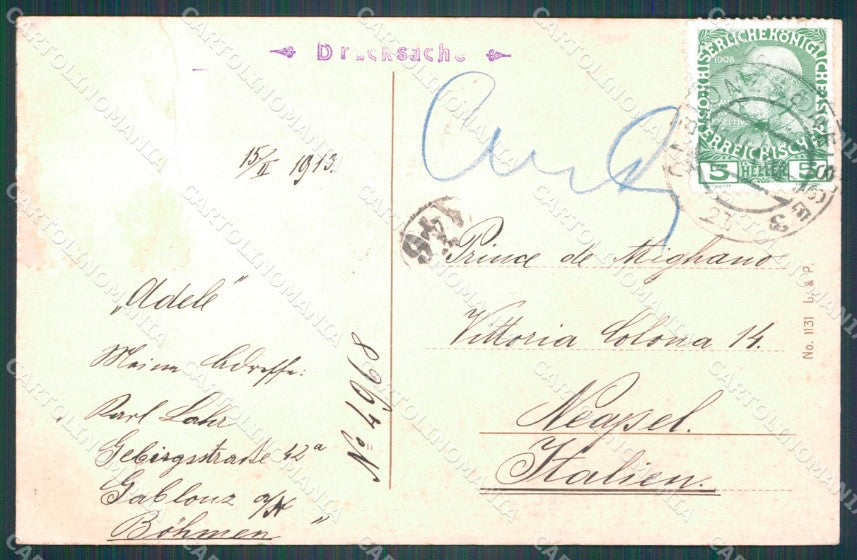 Drucksache
15/II 1913.
"Adele"
Meine Adresse:
Karl Lahr
Gebirgsstraße 42a
Gablonz a/N
Böhmen"
No 4968
Prince de Mighano
Vittoria Colona 14.
Neapel.
Italien.
No. 1131 L. & P.
1908
5 HELLER 5
CARTOLINOMANIA